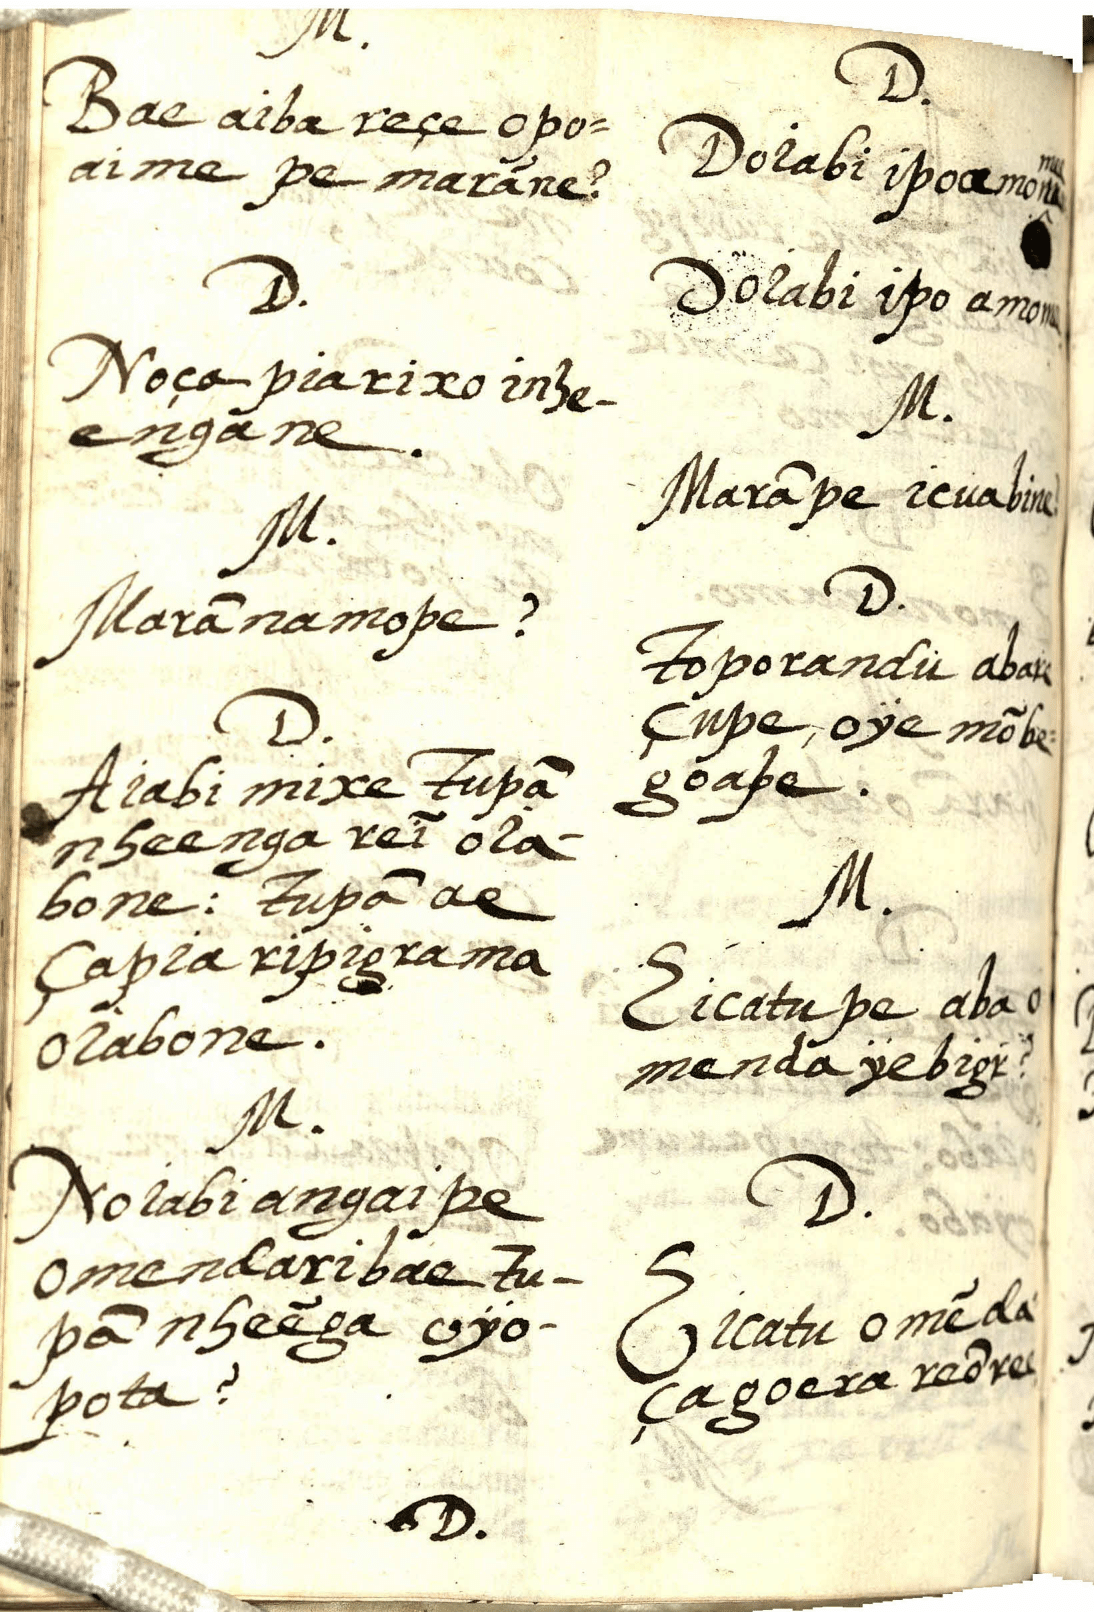 M.
Bae aiba reçe opo=
aime pe marãne?
D.
Noça piarixo inhe-
engãne.
M.
Marãnamope?
D.
Aiabi mixe Tupã
nheenga reĩ oia-
bone: Tupã ae
çapiaripigrama
oiabone.
M.
Noiabi angaipe
omendaribae Tu-
pã nheẽga oÿo-
pota?
D.
D.
Doiabi ipo amo
Doiabi ipo amo
M.
Marãpe icuabine?
D.
Toporandu abare
çupe, oÿe mõbe=
goape.
M.
Eicatupe aba o
menda ÿebigr?
D.
Eicatu omẽda
çagoera reõre